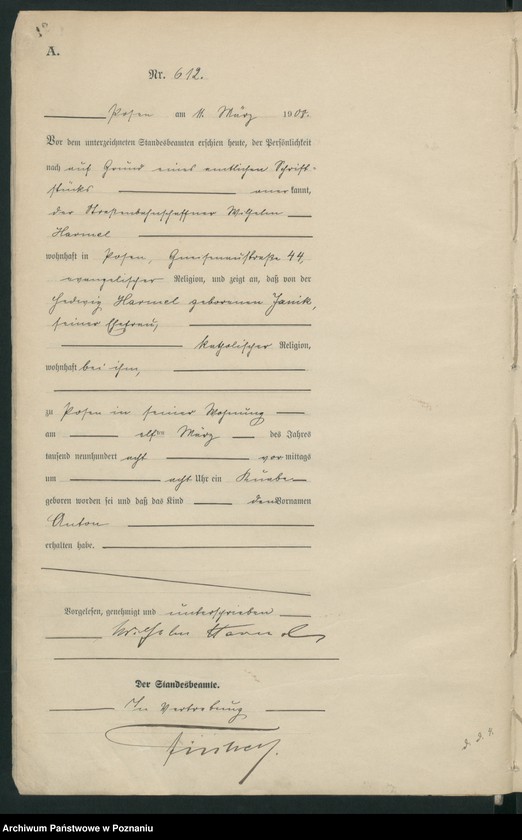 A.
Nr. 612.
Posen am 11. März 1908.
Vor dem unterzeichneten Standesbeamten erschien heute, der Persönlichkeit
nach auf Grund eines amtlichen Schrift-
stücks anerkannt,
der Straßenbahnschaffner Wilhelm
Harmel
wohnhaft in Posen, Gneisenaustraße 44,
evangelischer Religion, und zeigt an, daß von der
Hedwig Harmel geborenen Janik,
seiner Ehefrau,
katholischer Religion,
wohnhaft bei ihm,
zu Posen in seiner Wohnung
am elften März des Jahres
tausend neunhundert acht vormittags
um acht Uhr ein Knabe
geboren worden sei und daß das Kind den Vornamen
Anton
erhalten habe.
Vorgelesen, genehmigt und unterschrieben
Wilhelm Harmel
Der Standesbeamte.
In Vertretung
Archiwum Państwowe w Poznaniu